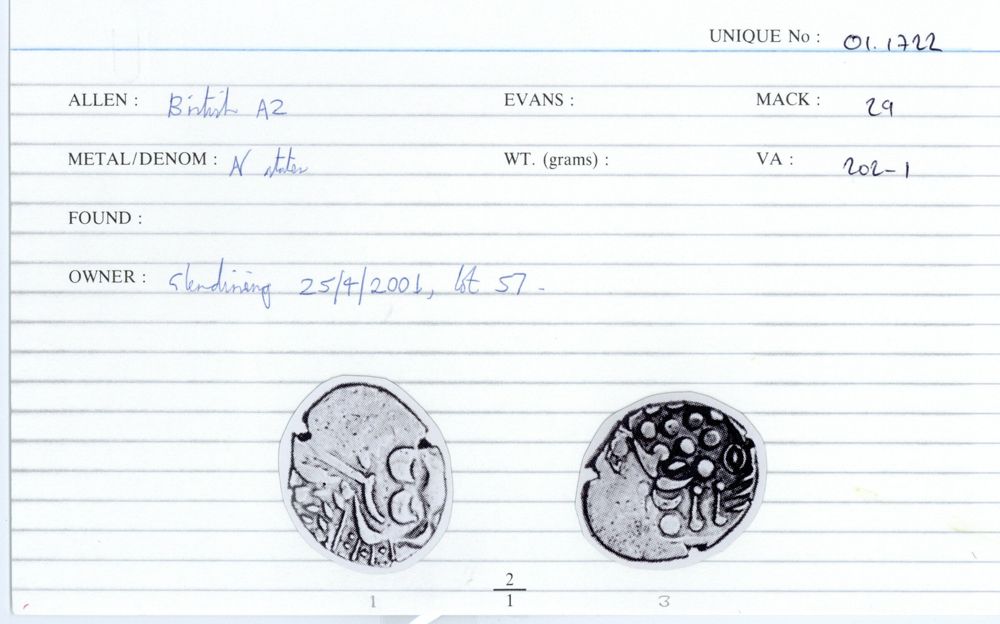 UNIQUE No : 01.1722
ALLEN : British A2 EVANS : MACK : 29
METAL/DENOM : N stater WT. (grams) : VA : 202-1
FOUND :
OWNER : Glendining 25/4/2001, lot 57 -
2
1 1 3